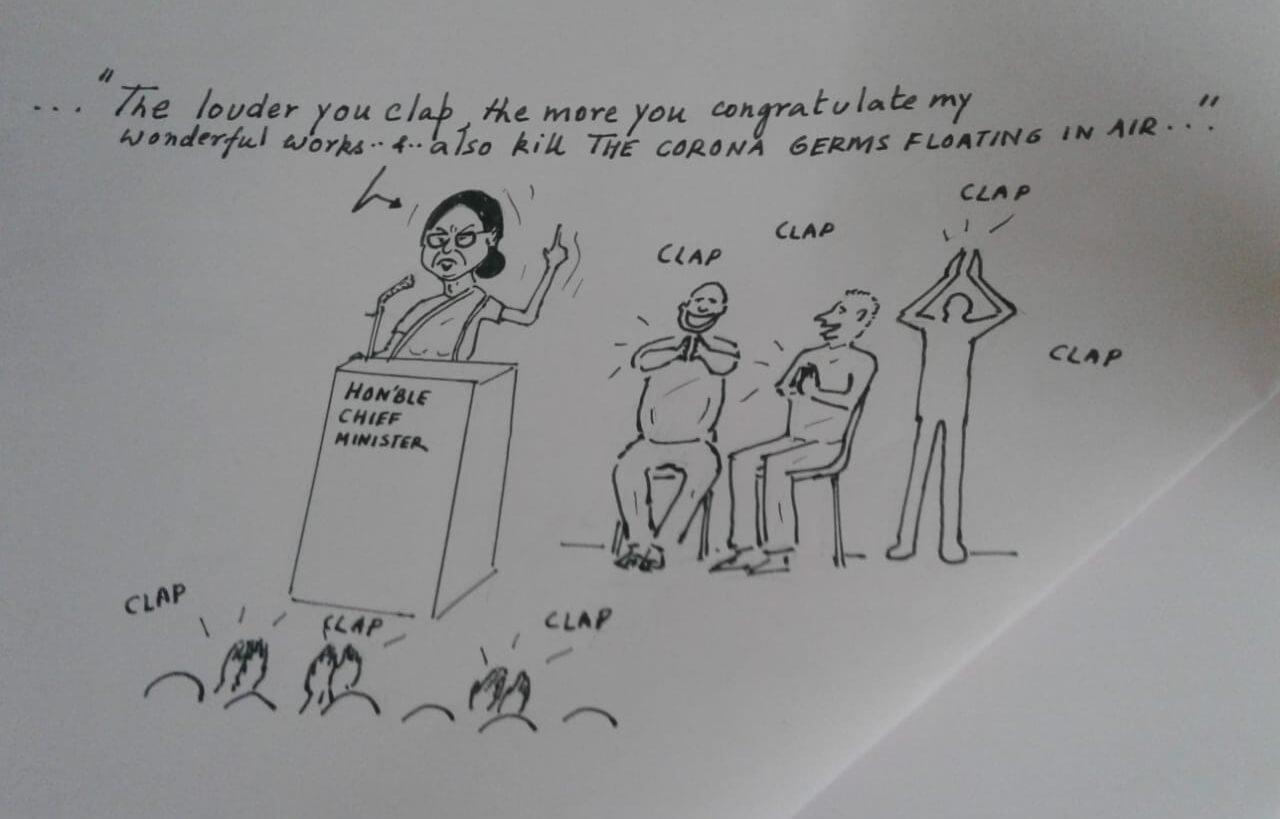 ... "The louder you clap, the more you congratulate my
wonderful works..&..also kill THE CORONA GERMS FLOATING IN AIR..."
CLAP
CLAP
CLAP
CLAP
HON'BLE
CHIEF
MINISTER
CLAP
CLAP
CLAP